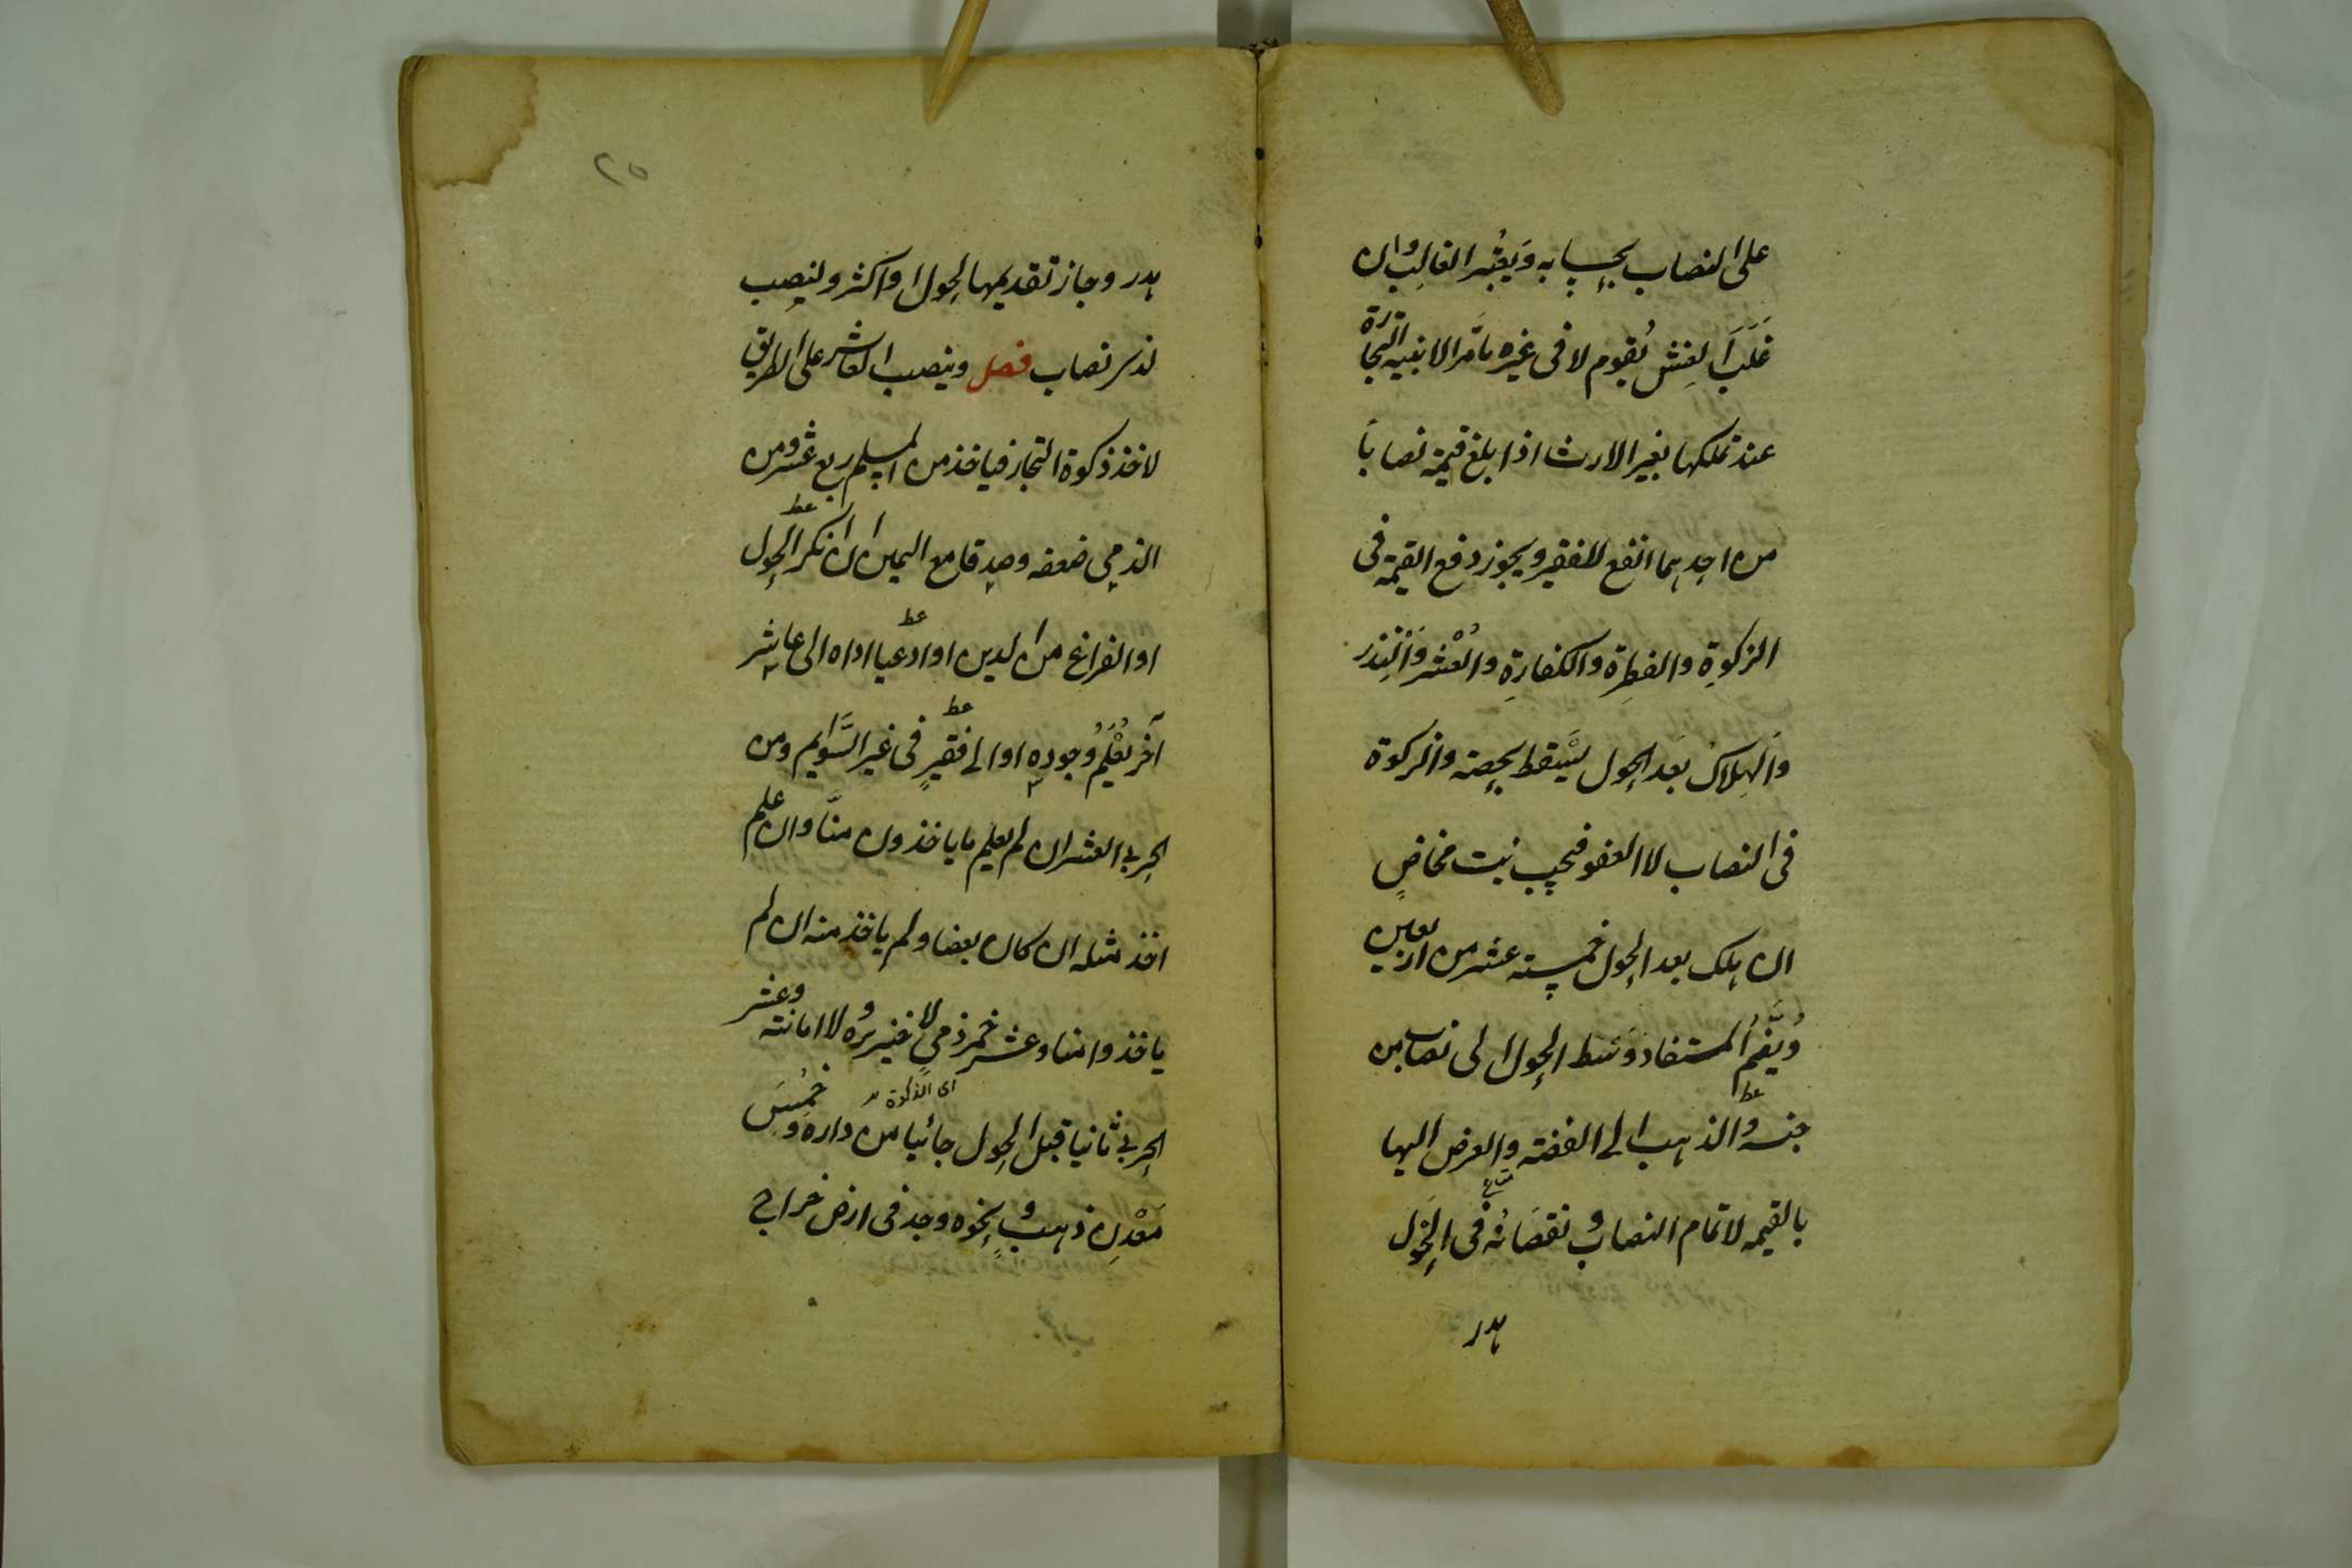 على النصاب بحسابه ويعتبر الغالب وان
غلب الغش يقوم لا في غيره ما مر الا بنية التجارة
عند تملكها بغير الارث اذا بلغ قيمته نصابا
من احدهما انفع للفقير ويجوز دفع القيمة في
الزكوة والفطرة والكفارة والعشر والنذر
والهلاك بعد الحول يسقط بحصته والزكوة
في النصاب لا العفو فيجب بنت مخاض
ان هلك بعد الحول خمسة عشر من اربعين
ويضم المستفاد وسط الحول الى نصاب من
جنسه والذهب الى الفضة والعرض اليها
بالقيمة لاتمام النصاب ونقصانه في الحول
هدر
٢٥
هدر وجاز تقديمها لحول او اكثر ولنصب
لذى نصاب فصل وينصب العاشر على الطريق
لاخذ زكوة التجار فياخذ من المسلم ربع عشر ومن
الذمي ضعفه وصدقا مع اليمين ان انكر الحول
او الفراغ من الدين او ادعيا اداه الى عاشر
آخر يعلم وجوده او الى فقير في غير السوايم ومن
الحربي العشر ان لم يعلم ما ياخذون منا وان علم
اخذ مثله ان كان بعضا ولم ياخذ منه ان لم
ياخذوا منا وعشر خمر ذمي لا خنزيره ولا امانته وعشر
اى الذكوة
الحربي ثانيا قبل الحول جائيا من داره وخمس
معدن ذهب ونحوه وجد في ارض خراج